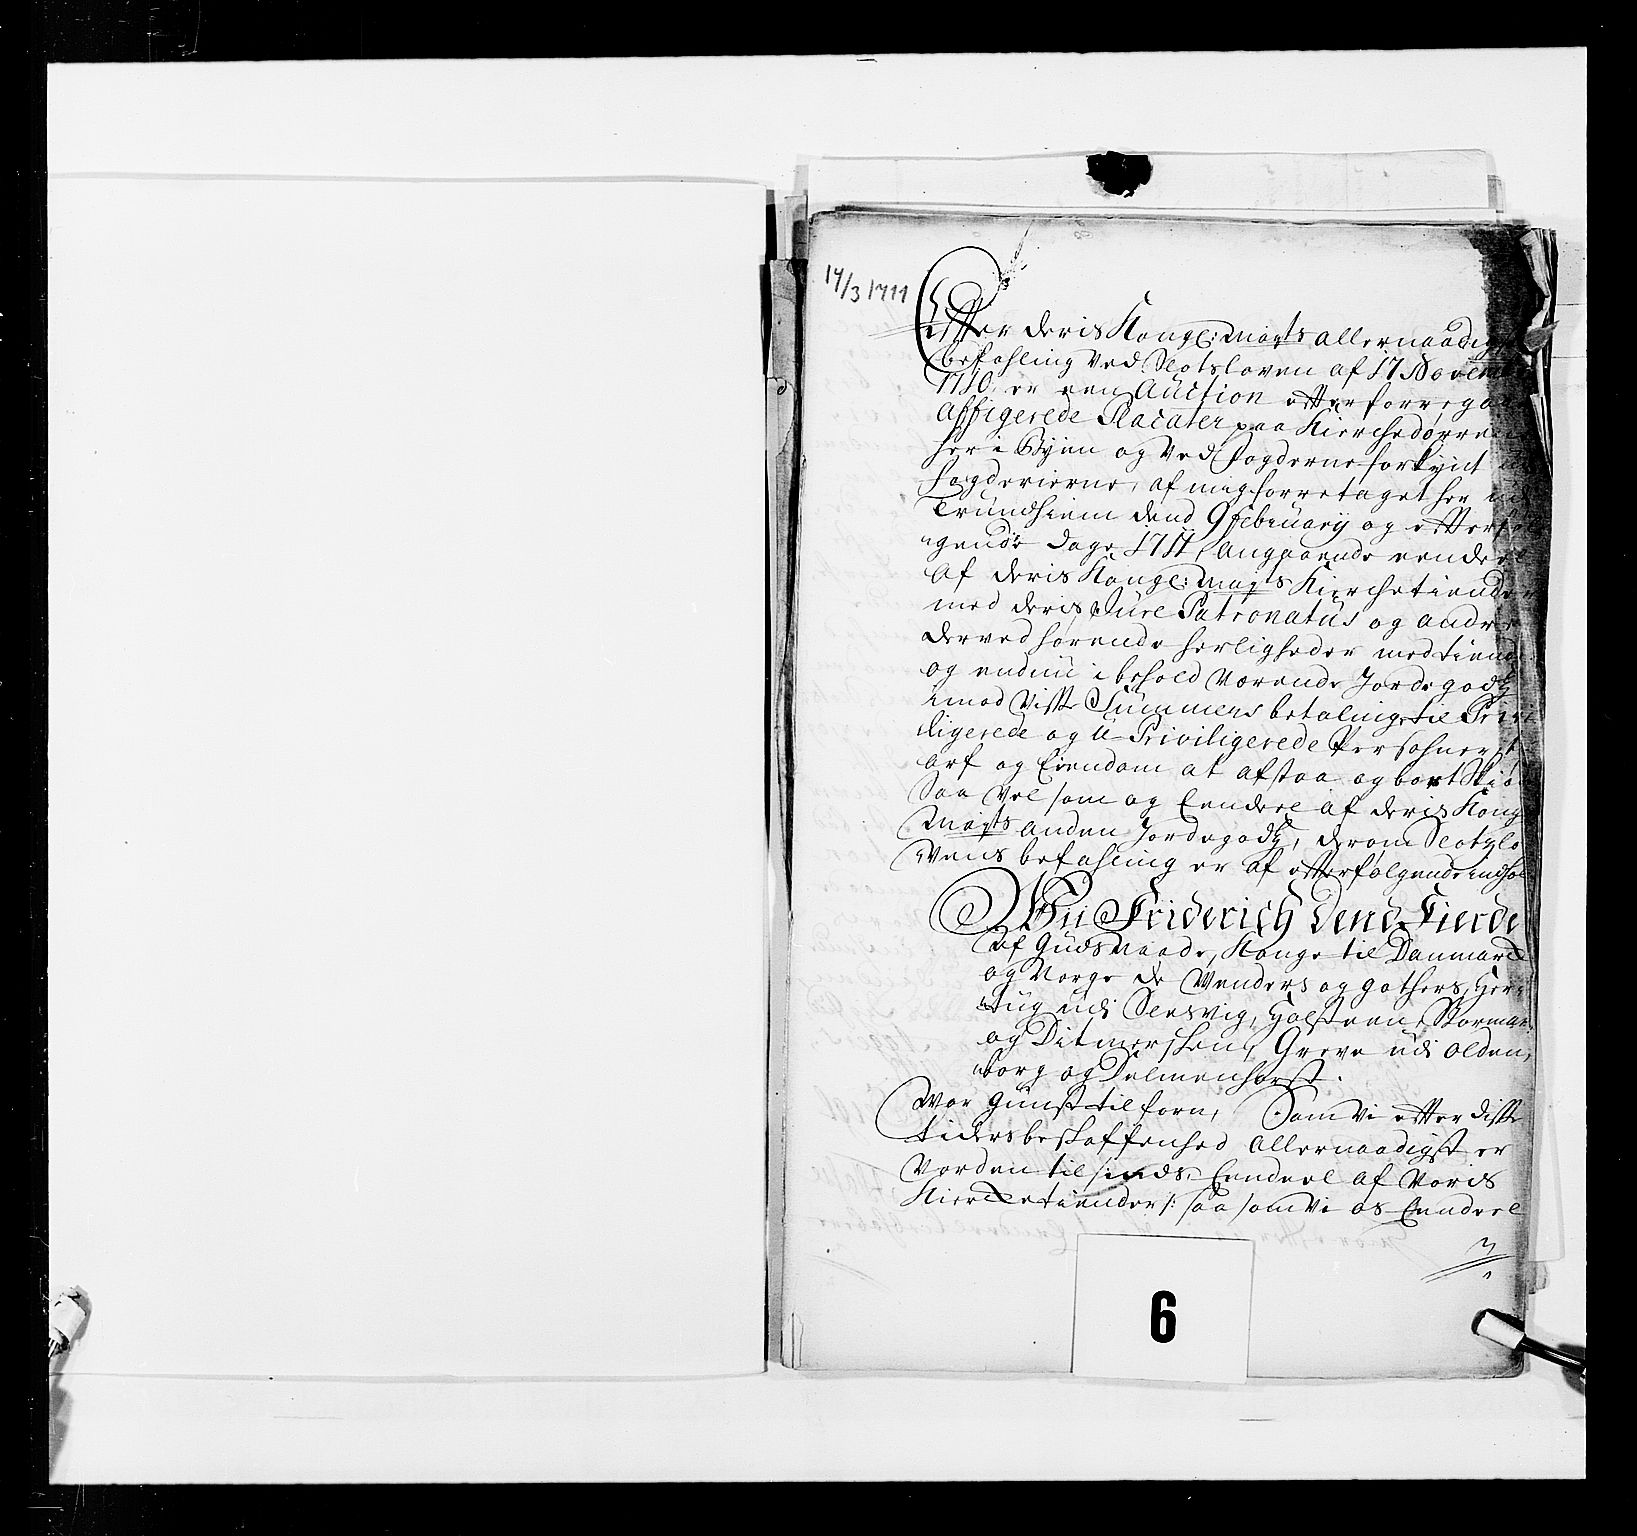 14/3 1711
Efter deris Kongl: Mayts allernaadigste
befahling ved Slotsloven af 17 Novembr
1710, er een Auction efter forregaaende
affigerede Placater paa Kirchedørrene
her i Byen og ved fogderne forkyndt udi
fogderierne, af mig forretaget her udi
Trundhiem dend 9 February og efterføl
gende dage 1711, angaaende eendeel
af deris Kongl: Mayts Kirchetiender
med deris Jure Patronatus og andre
derved hørende herligheder med tiende
og endnu i behold værende Jordegodtz
imod visse Summers betaling, til Privi
ligerede og U-Priviligerede Persohner til
arf og Eiendom at afstaa og bort Skiøde
Saa vel som og Eendeel af deris Kongl
Mayts anden Jordegodtz, derom Slotzlo
vens befahling er af efterfølgende indhold
Wii Friderich Dend Fierde
af Guds Naade, Konge til Danmarck
og Norge de Wenders og Gothers, Her
tug udi Slesvig, Holsteen, Stormarn
og Ditmersken, Greve udi Olden,
borg og Delmenhorst.
Wor Gunst tilforn, Som vi efter disse
tiders beskaffenhed allernaadigst er
vorden til sinds, Eendeel af Voris
Kirchetiender /: saa som vi os Eendeel
6